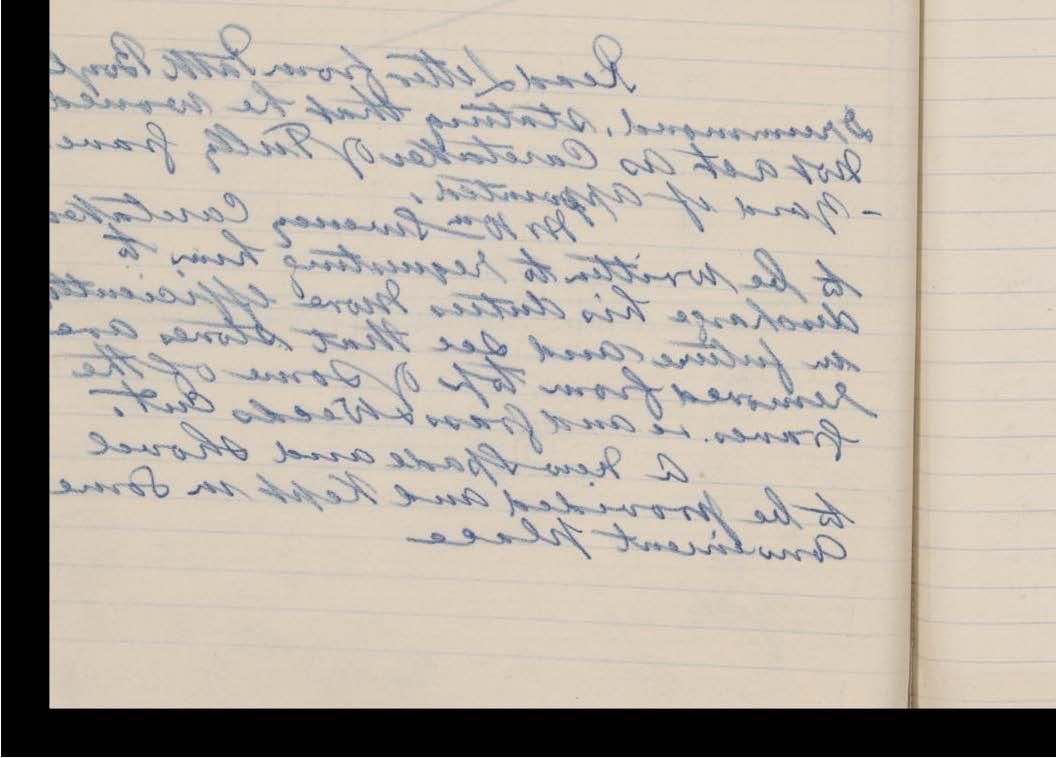 Read Letter from Patk Boyl
Drummond, stating that he would
not act as Caretaker of Tully Grave
- Yard if appointed.
Wm Sweeney Caretaker
to be written to requesting him to
discharge his duties more efficiently
in future and see that stones are
removed from top of some of the
graves. ie and grass & Weeds Cut.
A new Spade and Shovel
to be provided and Kept in Some
Convenient Place